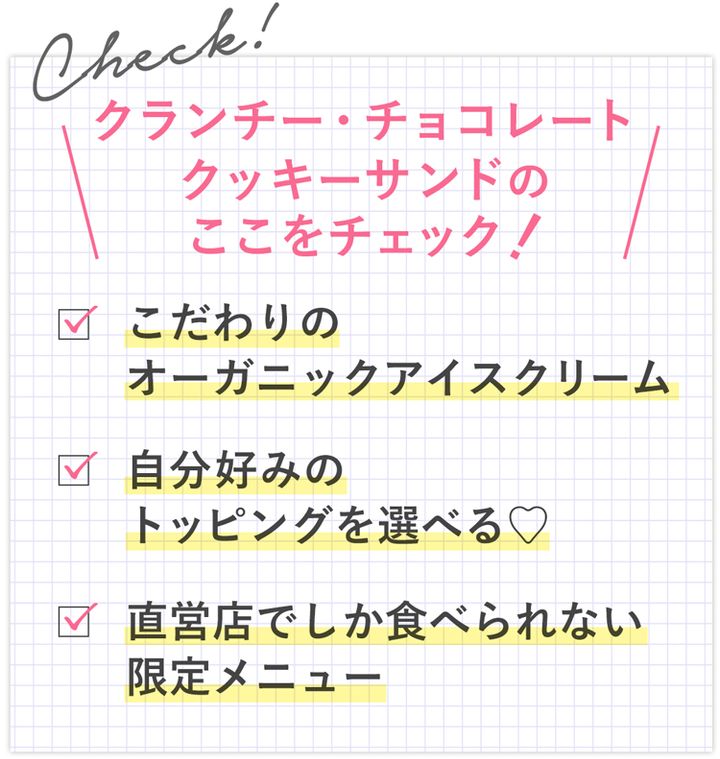 Check!
クランチー・チョコレート
クッキーサンドの
ここをチェック!
こだわりの
オーガニックアイスクリーム
自分好みの
トッピングを選べる♡
直営店でしか食べられない
限定メニュー